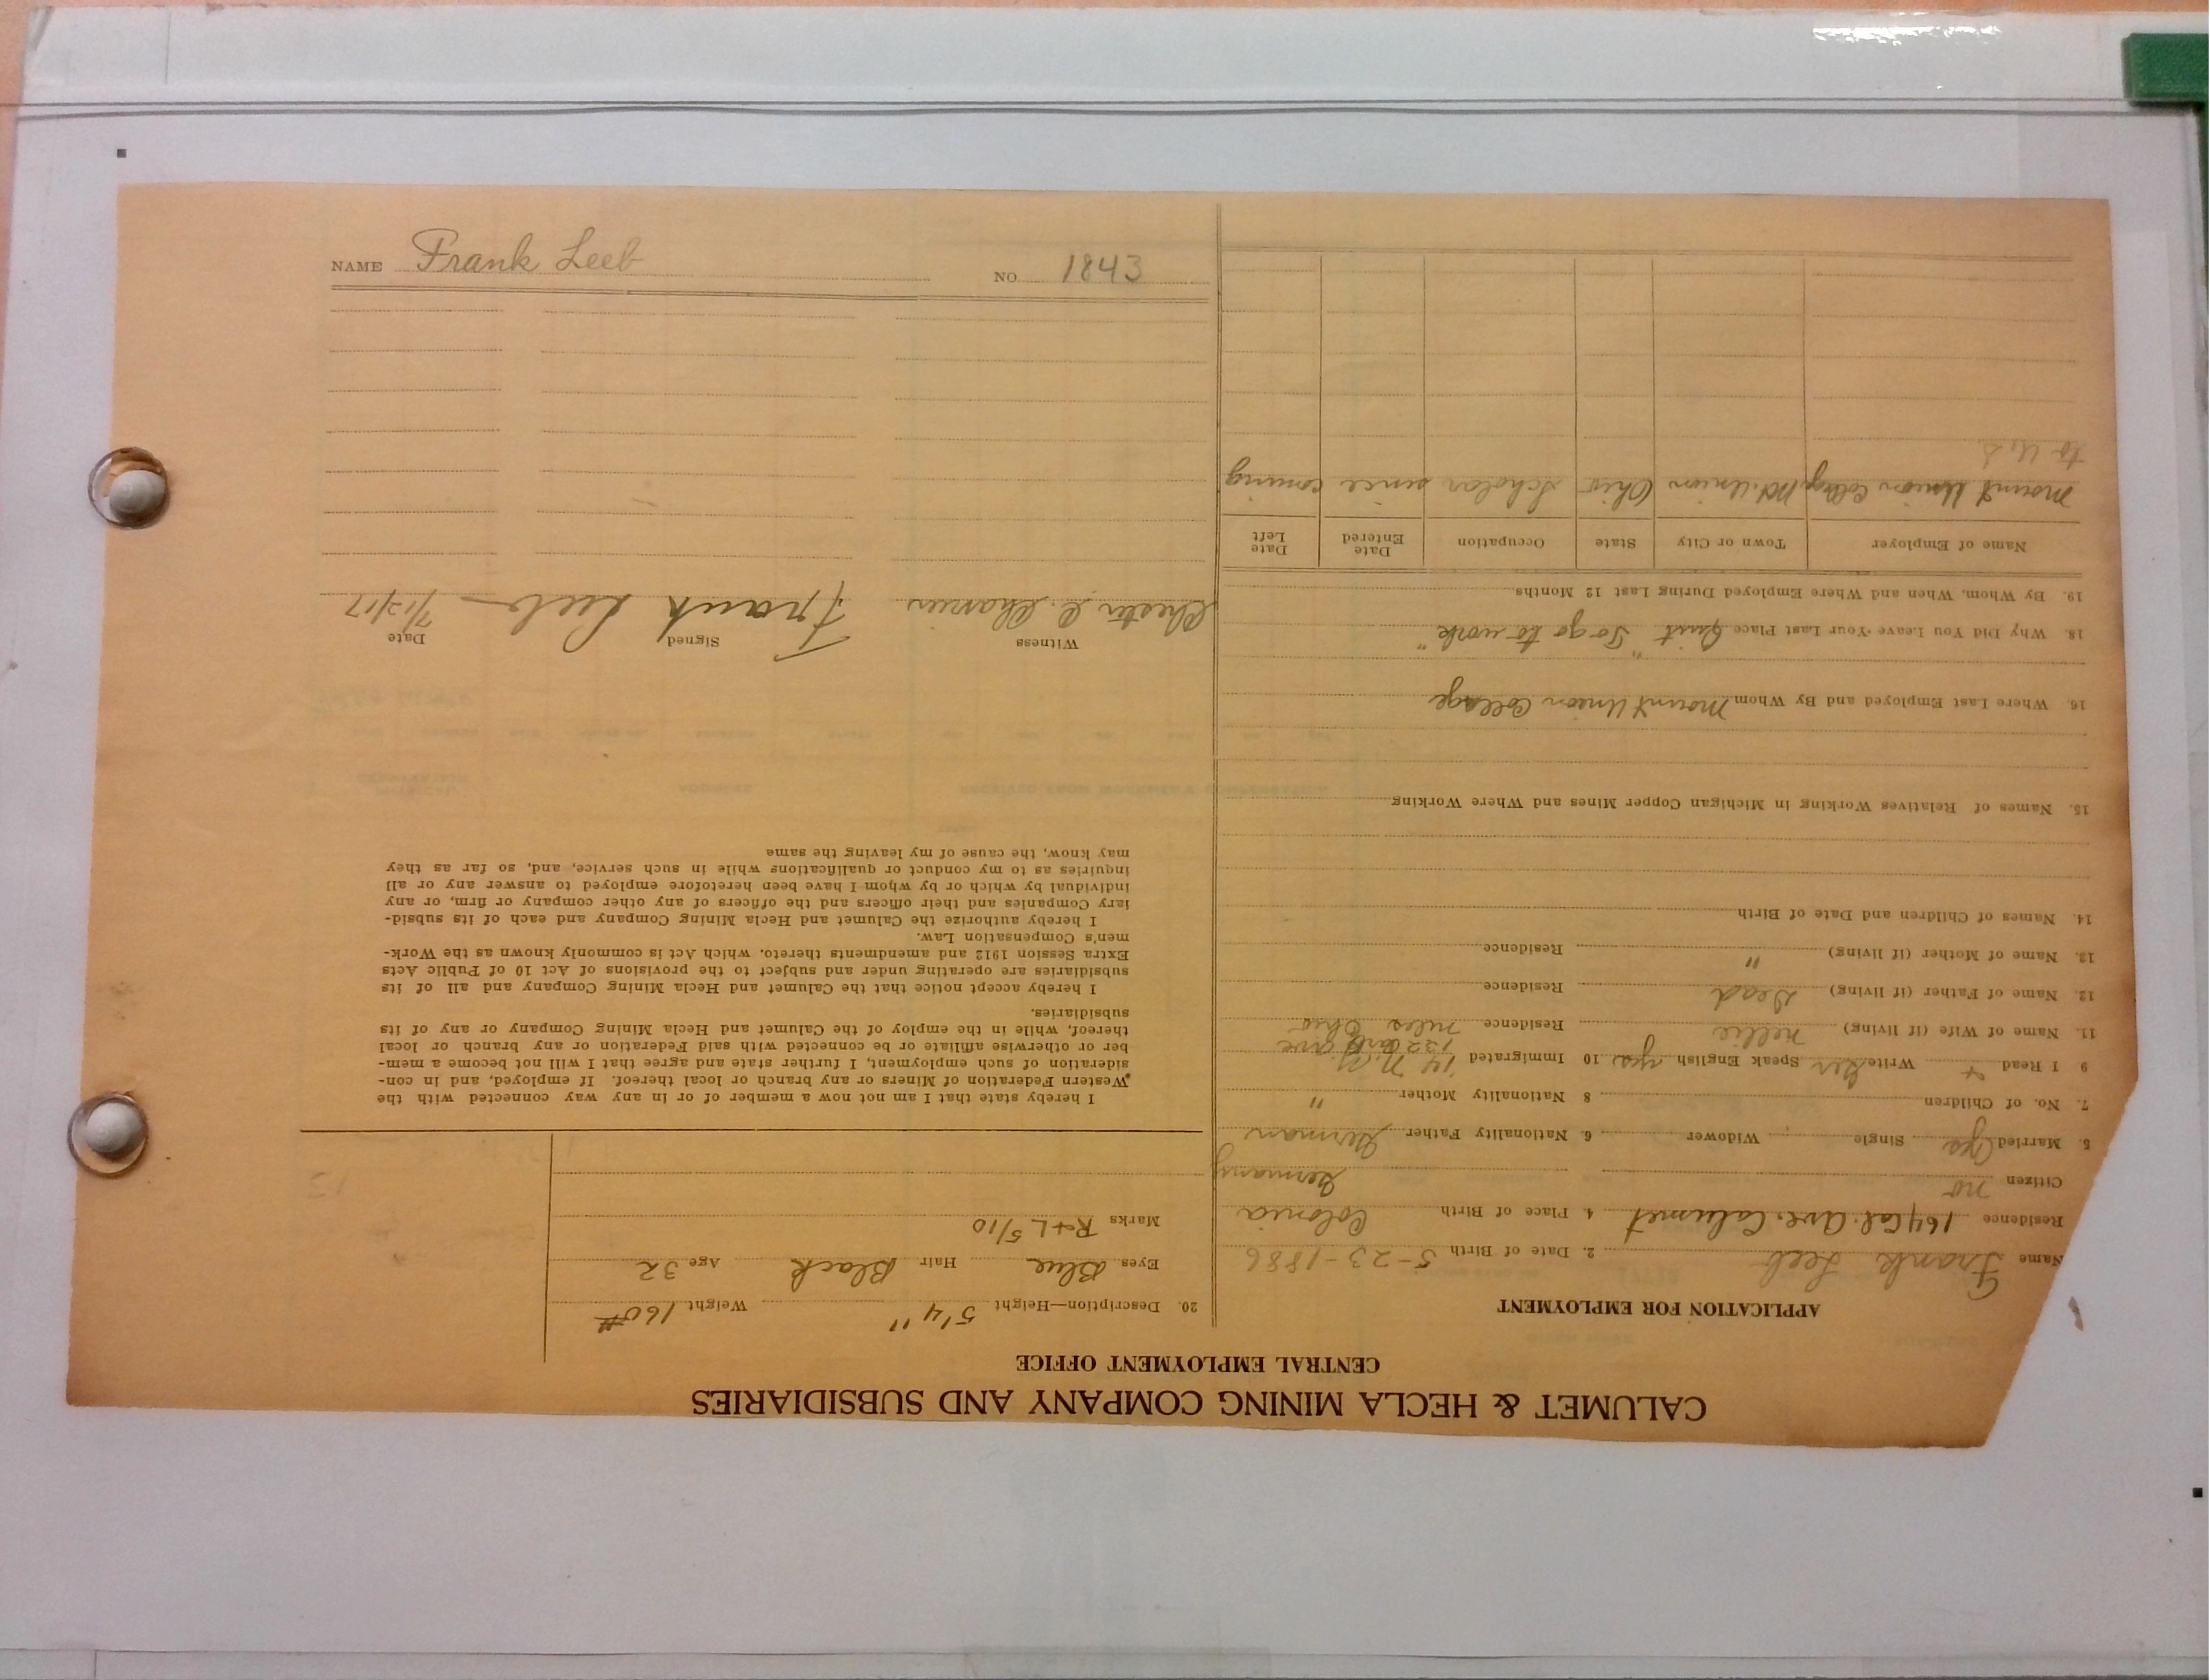 CALUMET & HECLA MINING COMPANY AND SUBSIDIARIES
CENTRAL EMPLOYMENT OFFICE
APPLICATION FOR EMPLOYMENT
Name Frank Leeb 2. Date of Birth 5-23-1886
Residence 164 Cal. Ave. Calumet 4. Place of Birth Colonia
Citizen no Germany
5. Married yes Single Widower 6. Nationality Father German
7. No. of Children 8 Nationality Mother "
9 I Read + Write Ger Speak English yes 10 Immigrated '14 N.Y.
132 Ave
11. Name of Wife (if living) Nellie Residence Niles Ohio
12. Name of Father (if living) Dead Residence
13. Name of Mother (if living) " Residence
14. Names of Children and Date of Birth
15. Names of Relatives Working in Michigan Copper Mines and Where Working
16. Where Last Employed and By Whom Mount Union College
18. Why Did You Leave Your Last Place Quit "To go to work"
19. By Whom, When and Where Employed During Last 12 Months
Name of Employer Town or City State Occupation Date Entered Date Left
Mount Union College Mt. Union Ohio Scholar since coming
to U.S
20. Description—Height 5'4" Weight 160#
Eyes Blue Hair Black Age 32
Marks R+L 5/10
I hereby state that I am not now a member of or in any way connected with the
Western Federation of Miners or any branch or local thereof. If employed, and in con-
sideration of such employment, I further state and agree that I will not become a mem-
ber or otherwise affiliate or be connected with said Federation or any branch or local
thereof, while in the employ of the Calumet and Hecla Mining Company or any of its
subsidiaries.
I hereby accept notice that the Calumet and Hecla Mining Company and all of its
subsidiaries are operating under and subject to the provisions of Act 10 of Public Acts
Extra Session 1912 and amendments thereto, which Act is commonly known as the Work-
men's Compensation Law.
I hereby authorize the Calumet and Hecla Mining Company and each of its subsid-
iary Companies and their officers and the officers of any other company or firm, or any
individual by which or by whom I have been heretofore employed to answer any or all
inquiries as to my conduct or qualifications while in such service, and, so far as they
may know, the cause of my leaving the same
Witness Signed Date
Chester C. Frank Leeb 7/12/17
NAME Frank Leeb NO. 1843